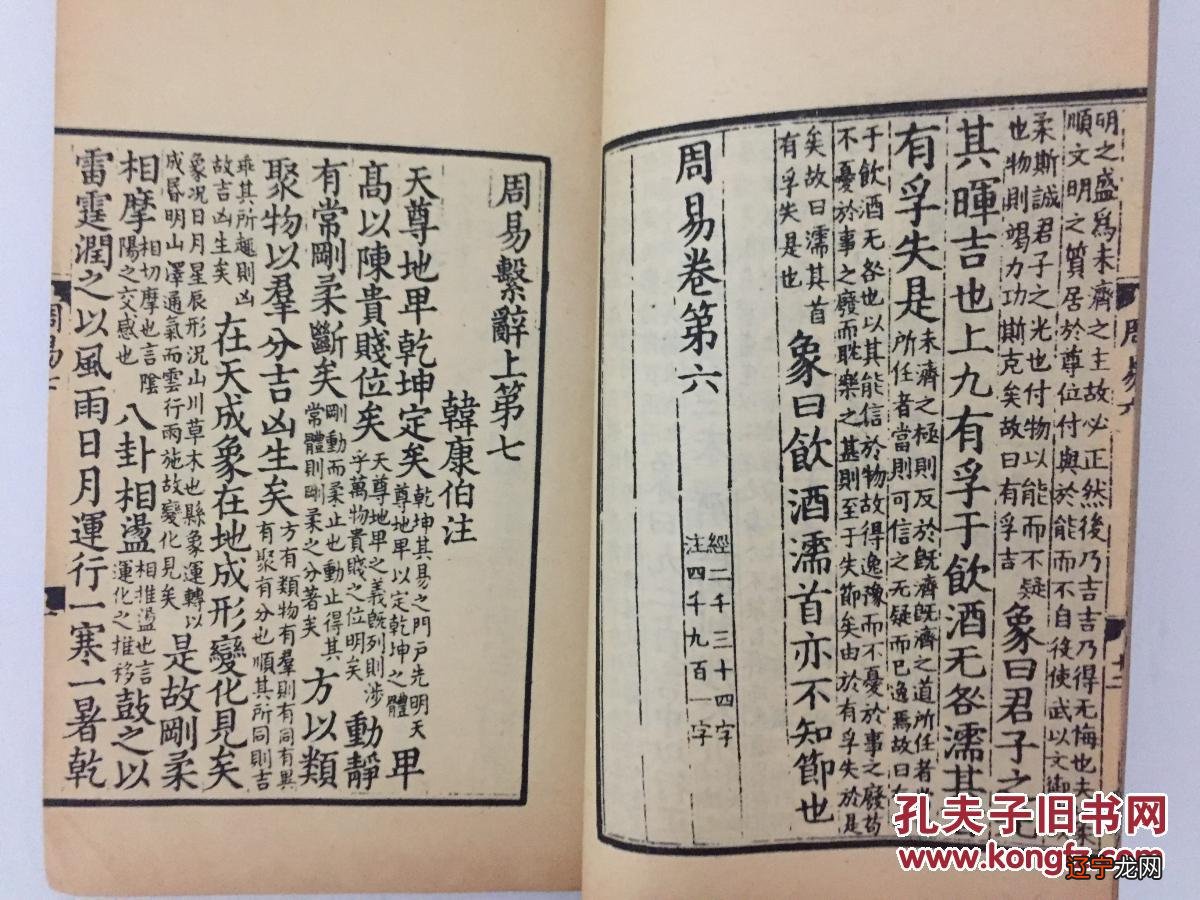 明之盛爲未濟之主故必正然後乃吉吉乃得无悔也夫
順文明之質居於尊位付與於能而不自役使武以文御
柔斯誠君子之光也付物以能而不疑
也物則竭力功斯克矣故曰有孚吉
象曰君子之
其暉吉也上九有孚于飲酒无咎濡其
有孚失是
未濟之極則反於旣濟旣濟之道所任者
所任者當則可信之无疑而已逸焉故曰
于飲酒无咎也以其能信於物故得逸豫而不憂於事之廢苟
不憂於事之廢而耽樂之甚則至于失節矣由於有孚失於是
矣故曰濡其首
有孚失是也
象曰飲酒濡首亦不知節也
周易卷第六
經二千三十四字
注四千九百一字
周易六
周易繫辭上第七
韓康伯注
天尊地卑乾坤定矣
乾坤其易之門戶先明天
尊地卑以定乾坤之體
卑
高以陳貴賤位矣
天尊地卑之義旣列則涉
乎萬物貴賤之位明矣
動靜
有常剛柔斷矣
剛動而柔止也動止得其
常體則剛柔之分著矣
方以類
聚物以羣分吉凶生矣
方有類物有羣則有同有異
有聚有分也順其所同則吉
乖其所趣則凶
故吉凶生矣
在天成象在地成形變化見矣
象况日月星辰形況山川草木也縣象運轉以
成昏明山澤通氣而雲行雨施故變化見矣
是故剛柔
相摩
相切摩也言陰
陽之交感也
八卦相盪
相推盪也言
運化之推移
鼓之以
雷霆潤之以風雨日月運行一寒一暑乾
周易七
孔夫子旧书网
www.kongfz.com
辽宁龙网